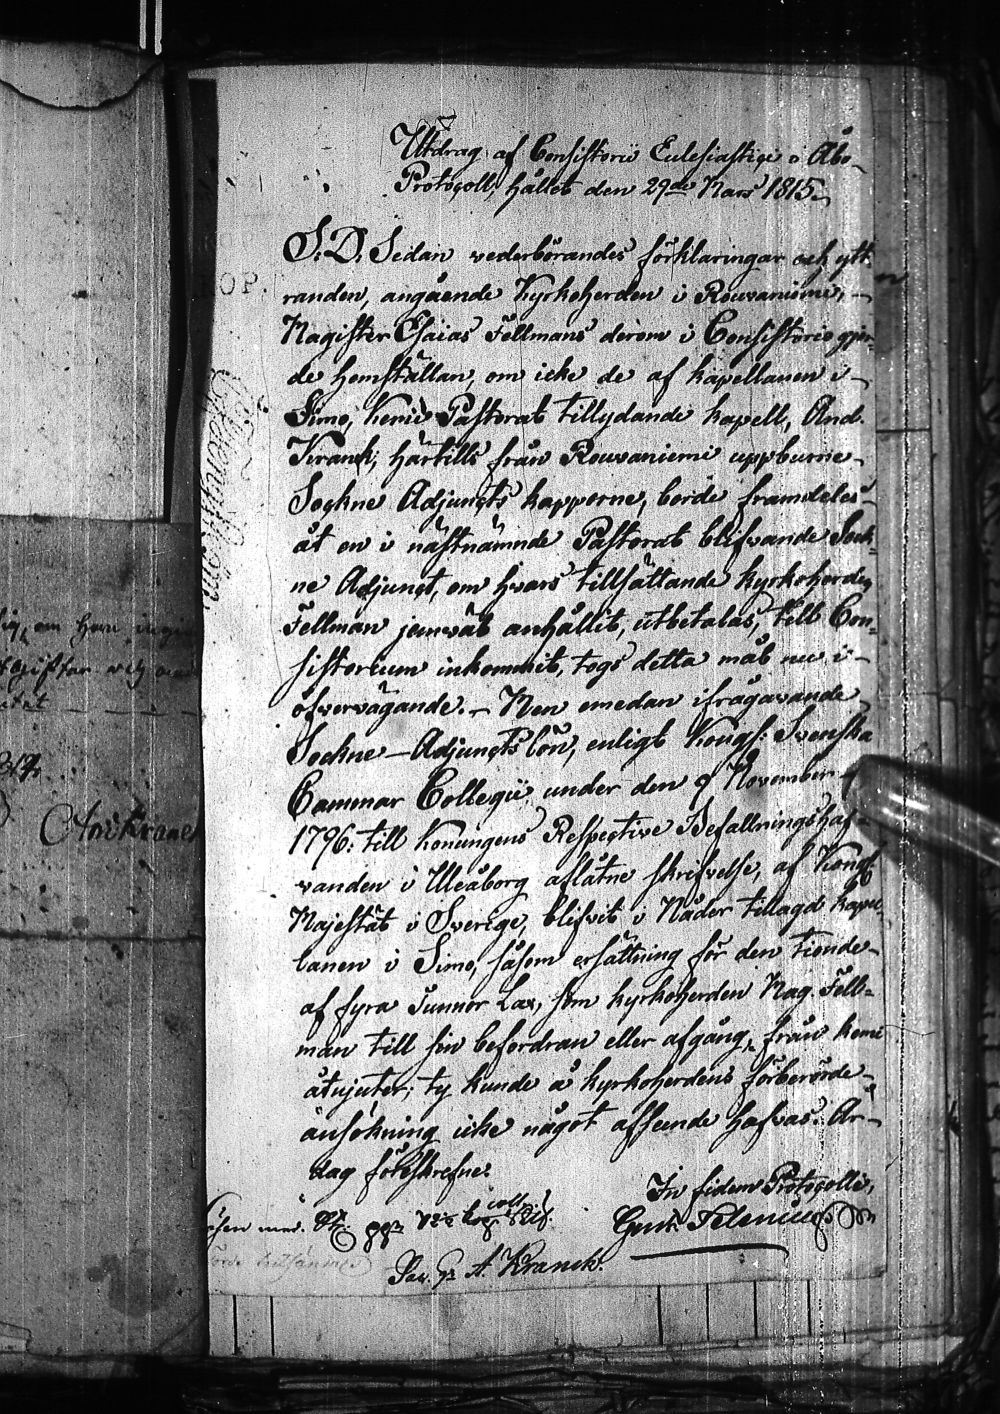 Utdrag af Consistorii Ecclesiastici i Åbo
Protocoll, hållet den 29de Mars 1815.
S. D. Sedan vederbörandes förklaringar och ytt-
randen, angående Kyrkoherden i Rouvaniemi,
Magister Esaias Fellmans derom i Consistorio gjor-
de hemställan, om icke de af kapellanen i
Simo, Kemi Pastorat tillydande kapell, And.
Kranck, härtills från Rouvaniemi uppburne
Sockne Adjuncts kapporne, borde framdeles
åt en i nästnämnde Pastorat blifvande Sock-
ne Adjunct, om hvars tillsättande kyrkoherden
Fellman jemväl anhållit, utbetalas, till Con-
sistorium inkommit, togs detta mål nu i
öfvervägande. — Men emedan ifrågavande
Sockne-Adjuncts lön, enligt Kongl. Svenska
Cammar Collegii under den 9 November
1796 till Konungens Respective Befallningshaf-
vanden i Uleåborg aflåtne skrifvelse, af Kongl.
Majestät i Sverige, blifvit i Nåder tillagd kapel-
lanen i Simo, såsom ersättning för den tionde
af fyra Tunnor Lax, som kyrkoherden Mag. Fell-
man till sin befordran eller afgång, från Kemi
åtnjuter; ty kunde å kyrkoherdens förberörde
ansökning icke något afseende hafvas. År
dag föreskrefne.
In fidem Protocolli,
Gust. Selenius
A. Kranck